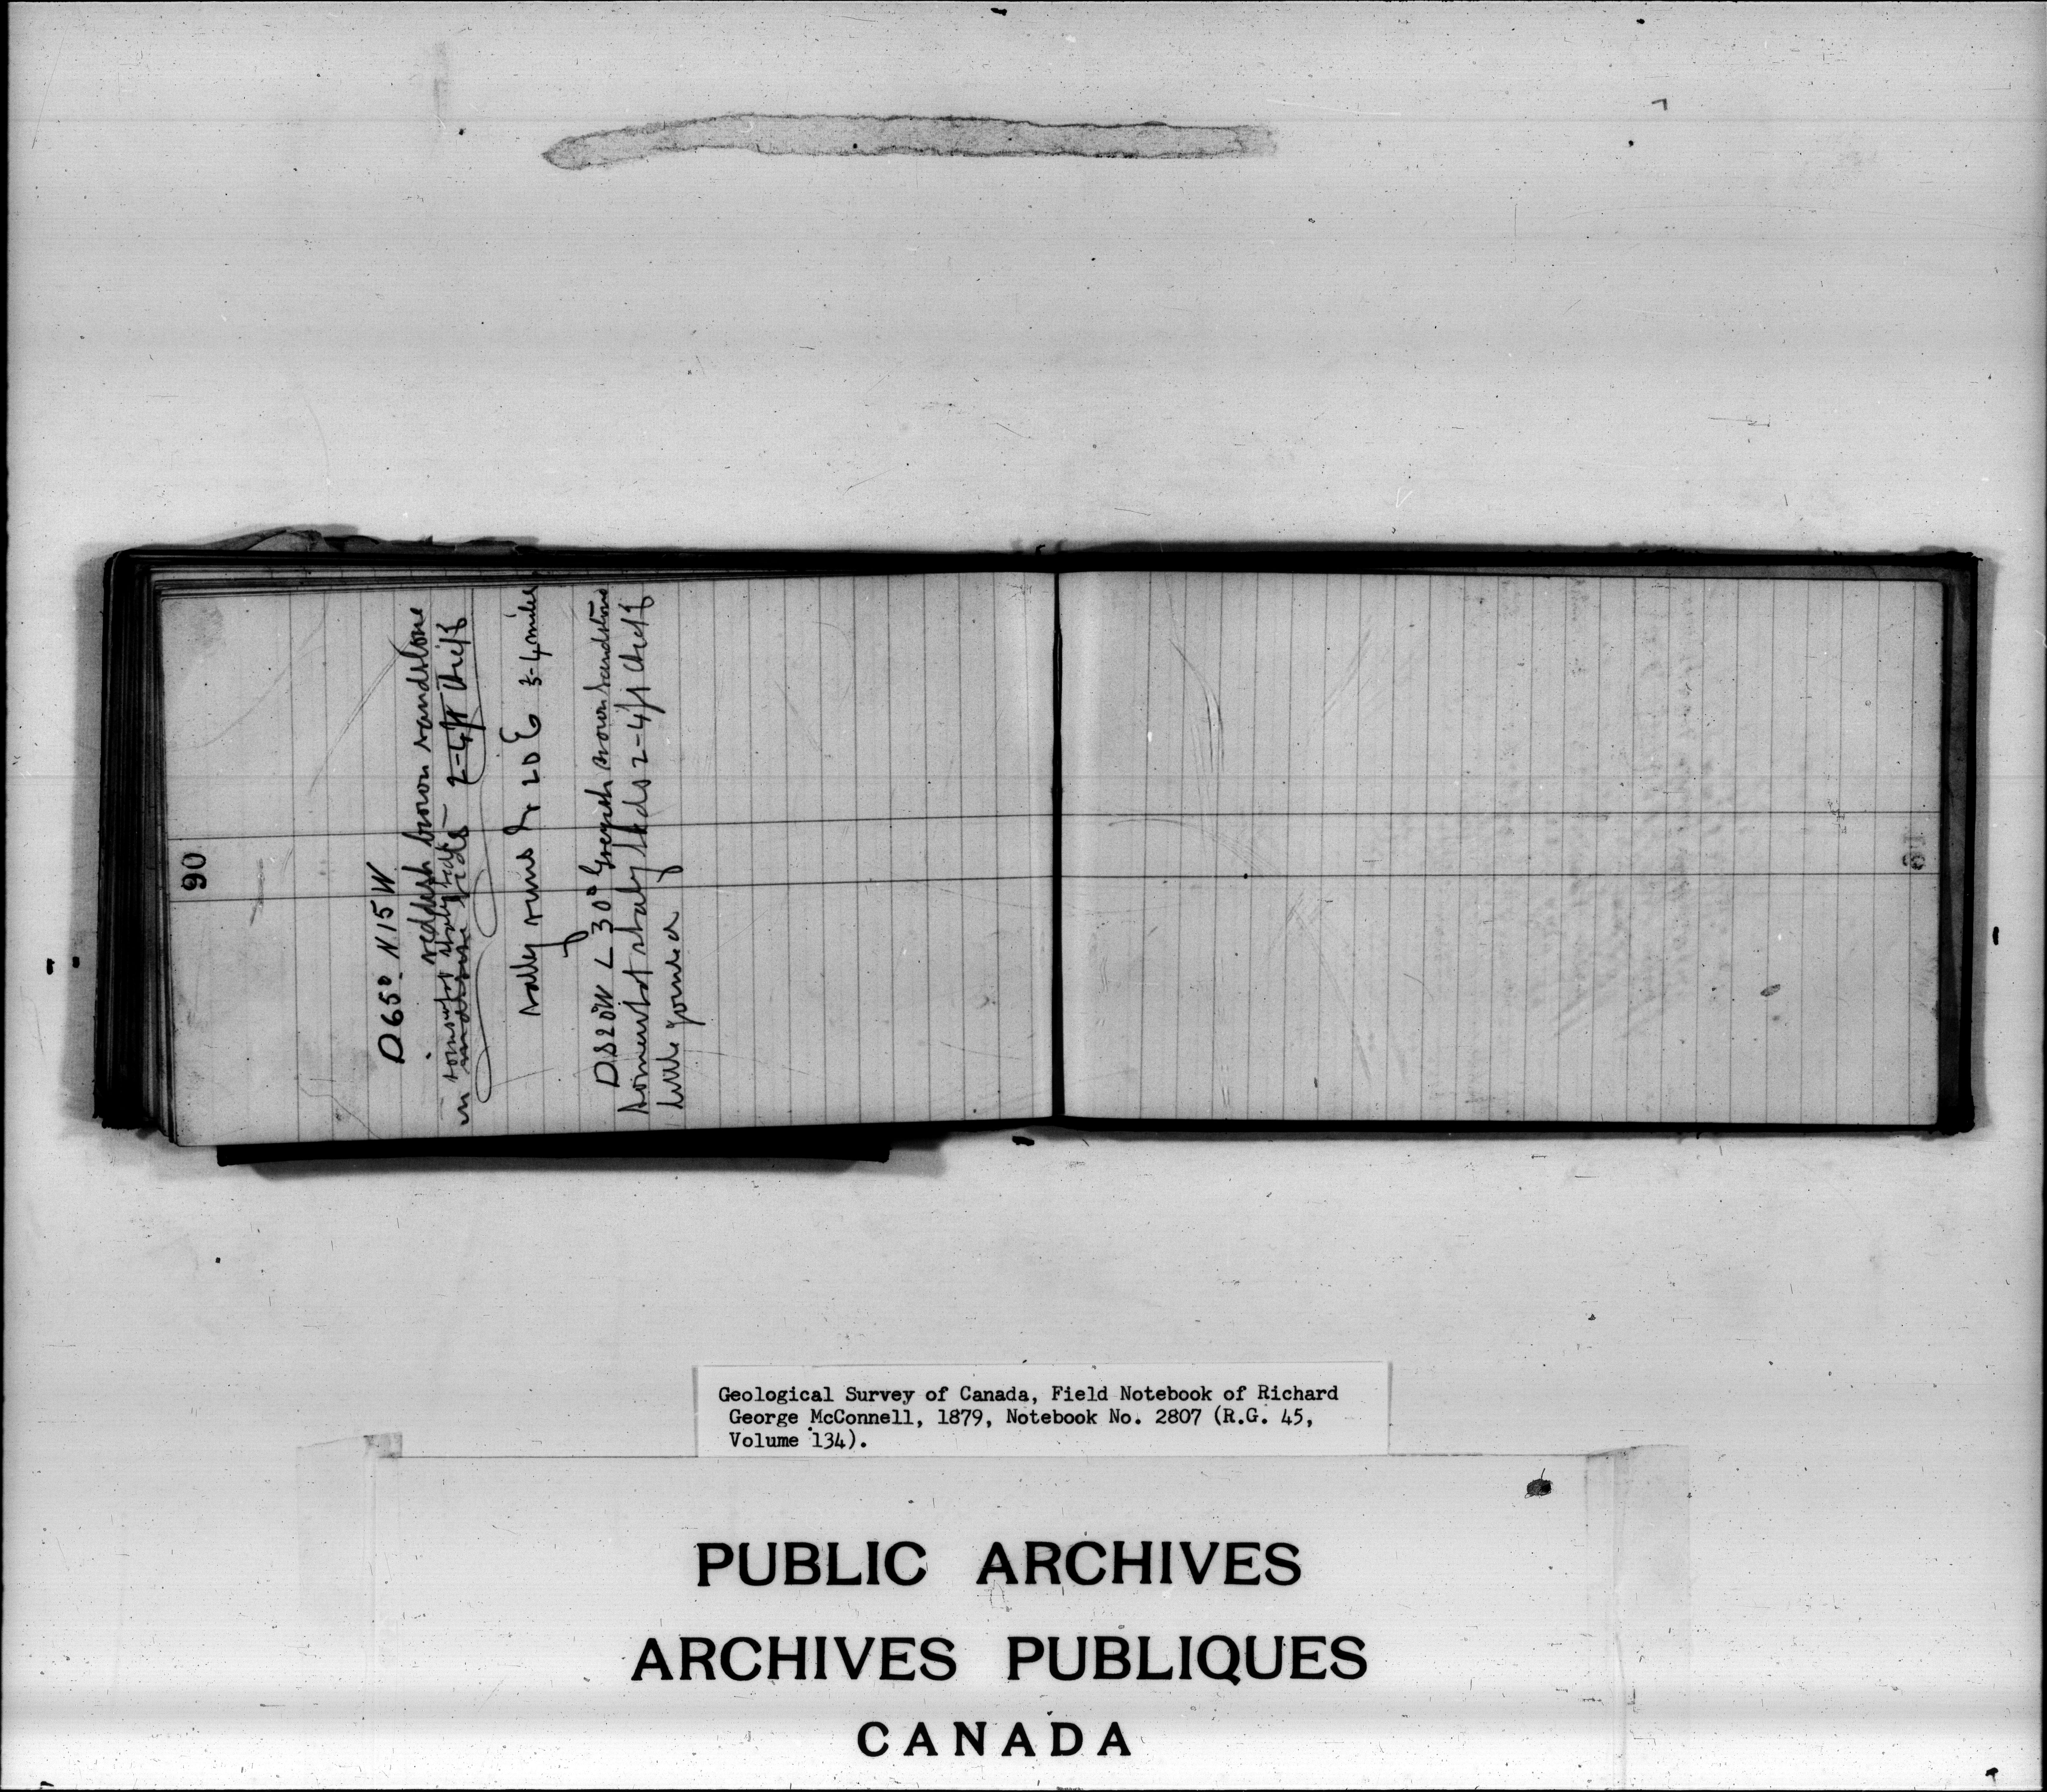 90
D 65° N 15 W
reddish brown sandstone
in somewhat shaly beds 2-4 ft
valley runs N 20 E 3-4 miles
D S 20 W < 30° Greyish brown sandstone
somewhat shaly beds 2-4 ft
little jointed
Geological Survey of Canada, Field Notebook of Richard
George McConnell, 1879, Notebook No. 2807 (R.G. 45,
Volume 134).
PUBLIC ARCHIVES
ARCHIVES PUBLIQUES
CANADA